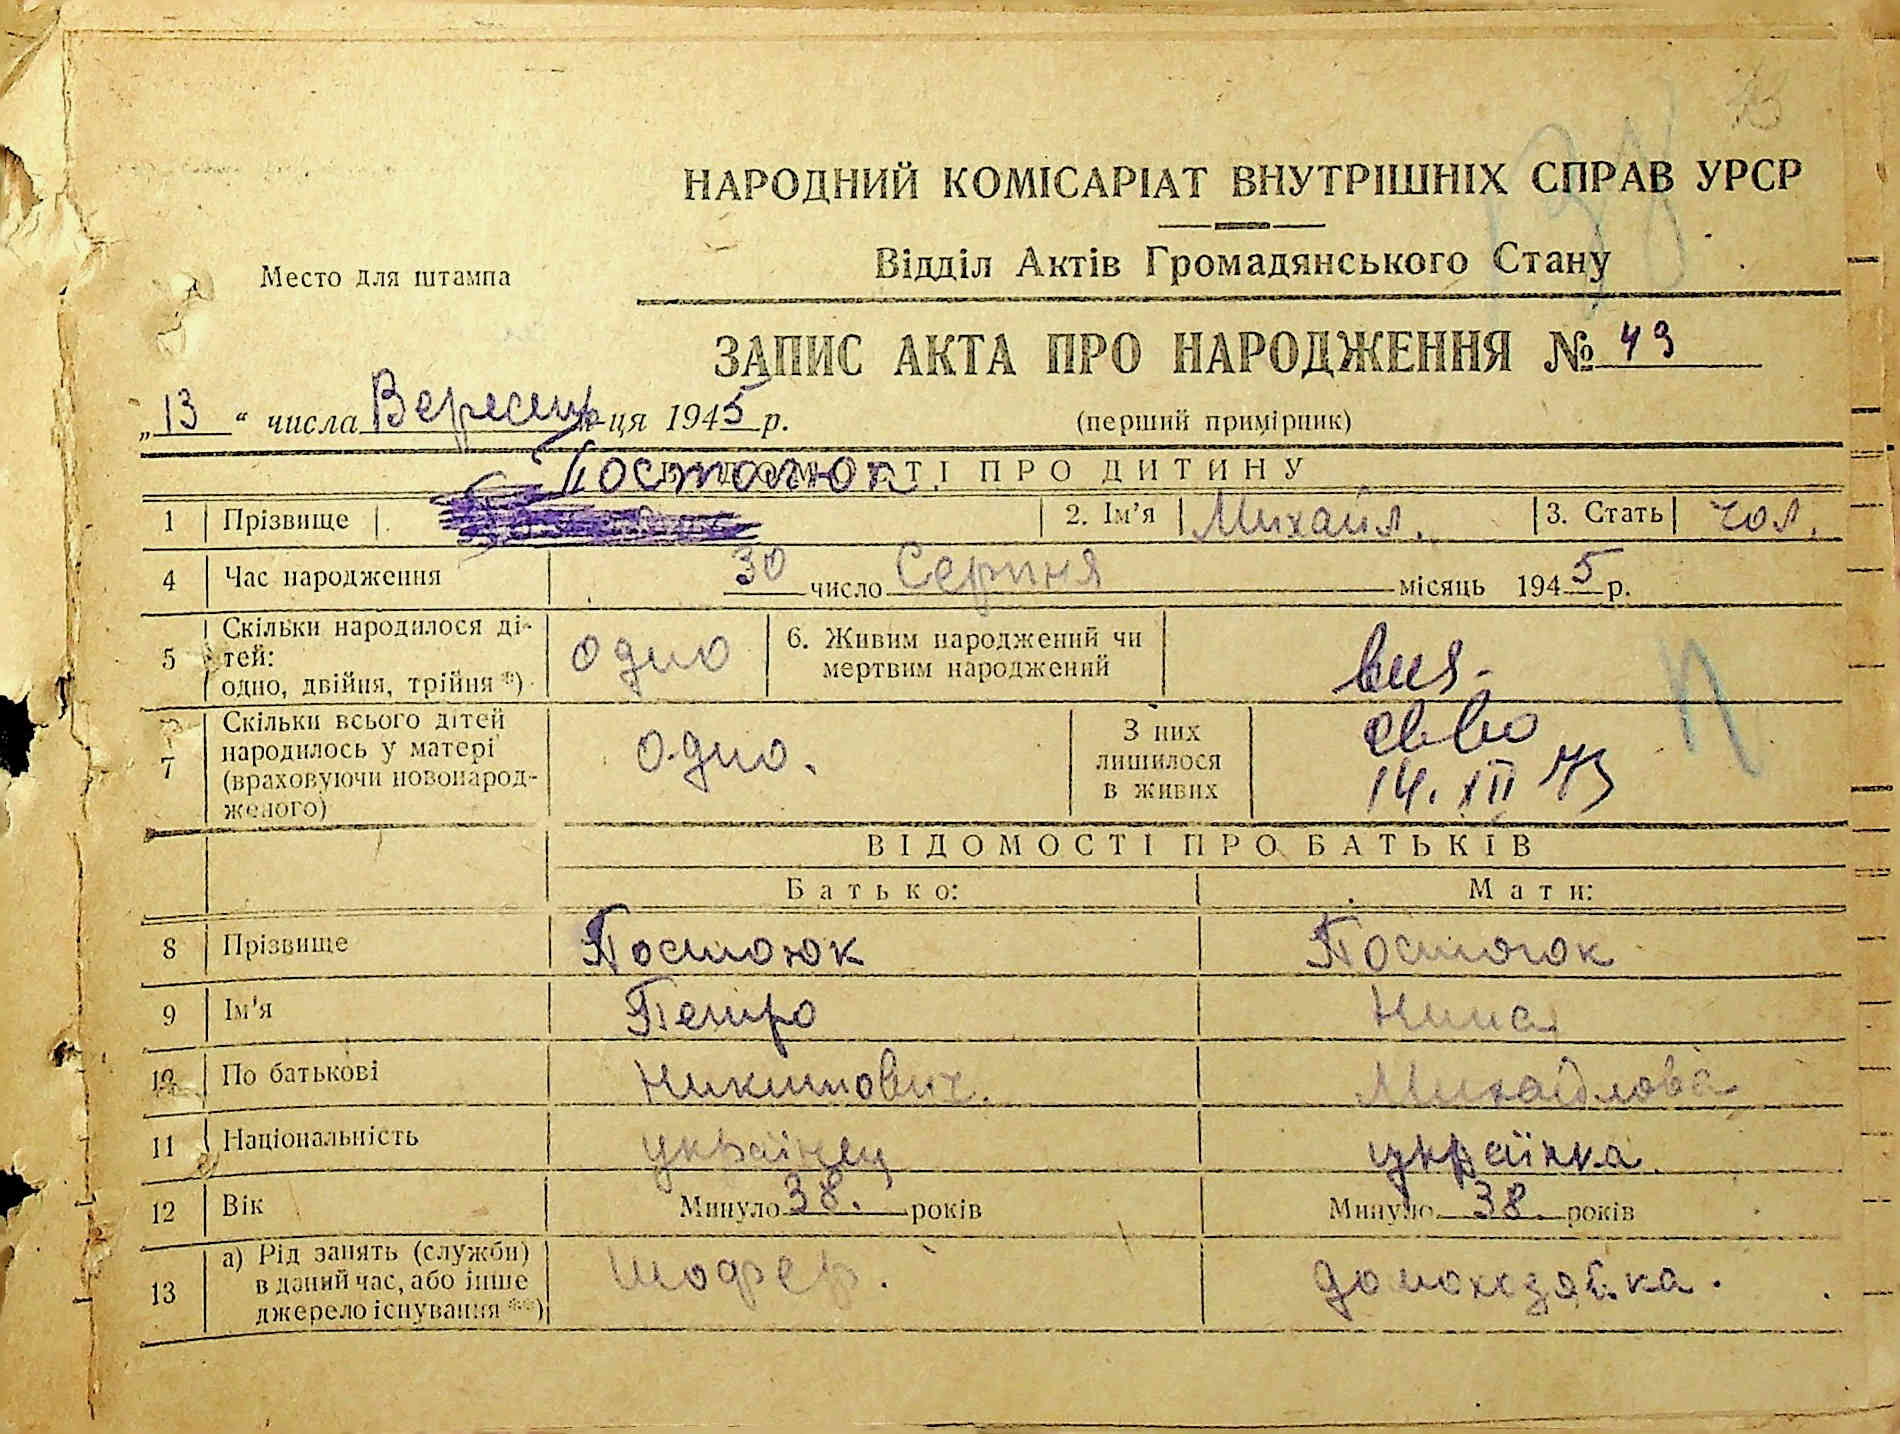 НАРОДНИЙ КОМІСАРІАТ ВНУТРІШНІХ СПРАВ УРСР
Відділ Актів Громадянського Стану
Место для штампа
ЗАПИС АКТА ПРО НАРОДЖЕННЯ № 43
„13“ числа Вересень м-ця 1945 р. (перший примірник)
ВІДОМОСТІ ПРО ДИТИНУ
Постолюк.
1 Прізвище 2. Ім'я Михайл. 3. Стать чол.
4 Час народження 30 число Серпня місяць 1945 р.
5 Скільки народилося ді-
тей:
одно, двійня, трійня *) одно 6. Живим народжений чи
мертвим народжений
7 Скільки всього дітей
народилось у матері
(враховуючи новонарод-
женого) одно. З них
лишилося
в живих
14. XII 73
ВІДОМОСТІ ПРО БАТЬКІВ
Батько: Мати:
8 Прізвище Постоюк Постоюк
9 Ім'я Петро Нина
10 По батькові Никитович. Михайлова
11 Національність українец українка.
12 Вік Минуло 38. років Минуло 38. років
13 а) Рід занять (служби)
в даний час, або інше
джерело існування **) шофер. домохозяйка.